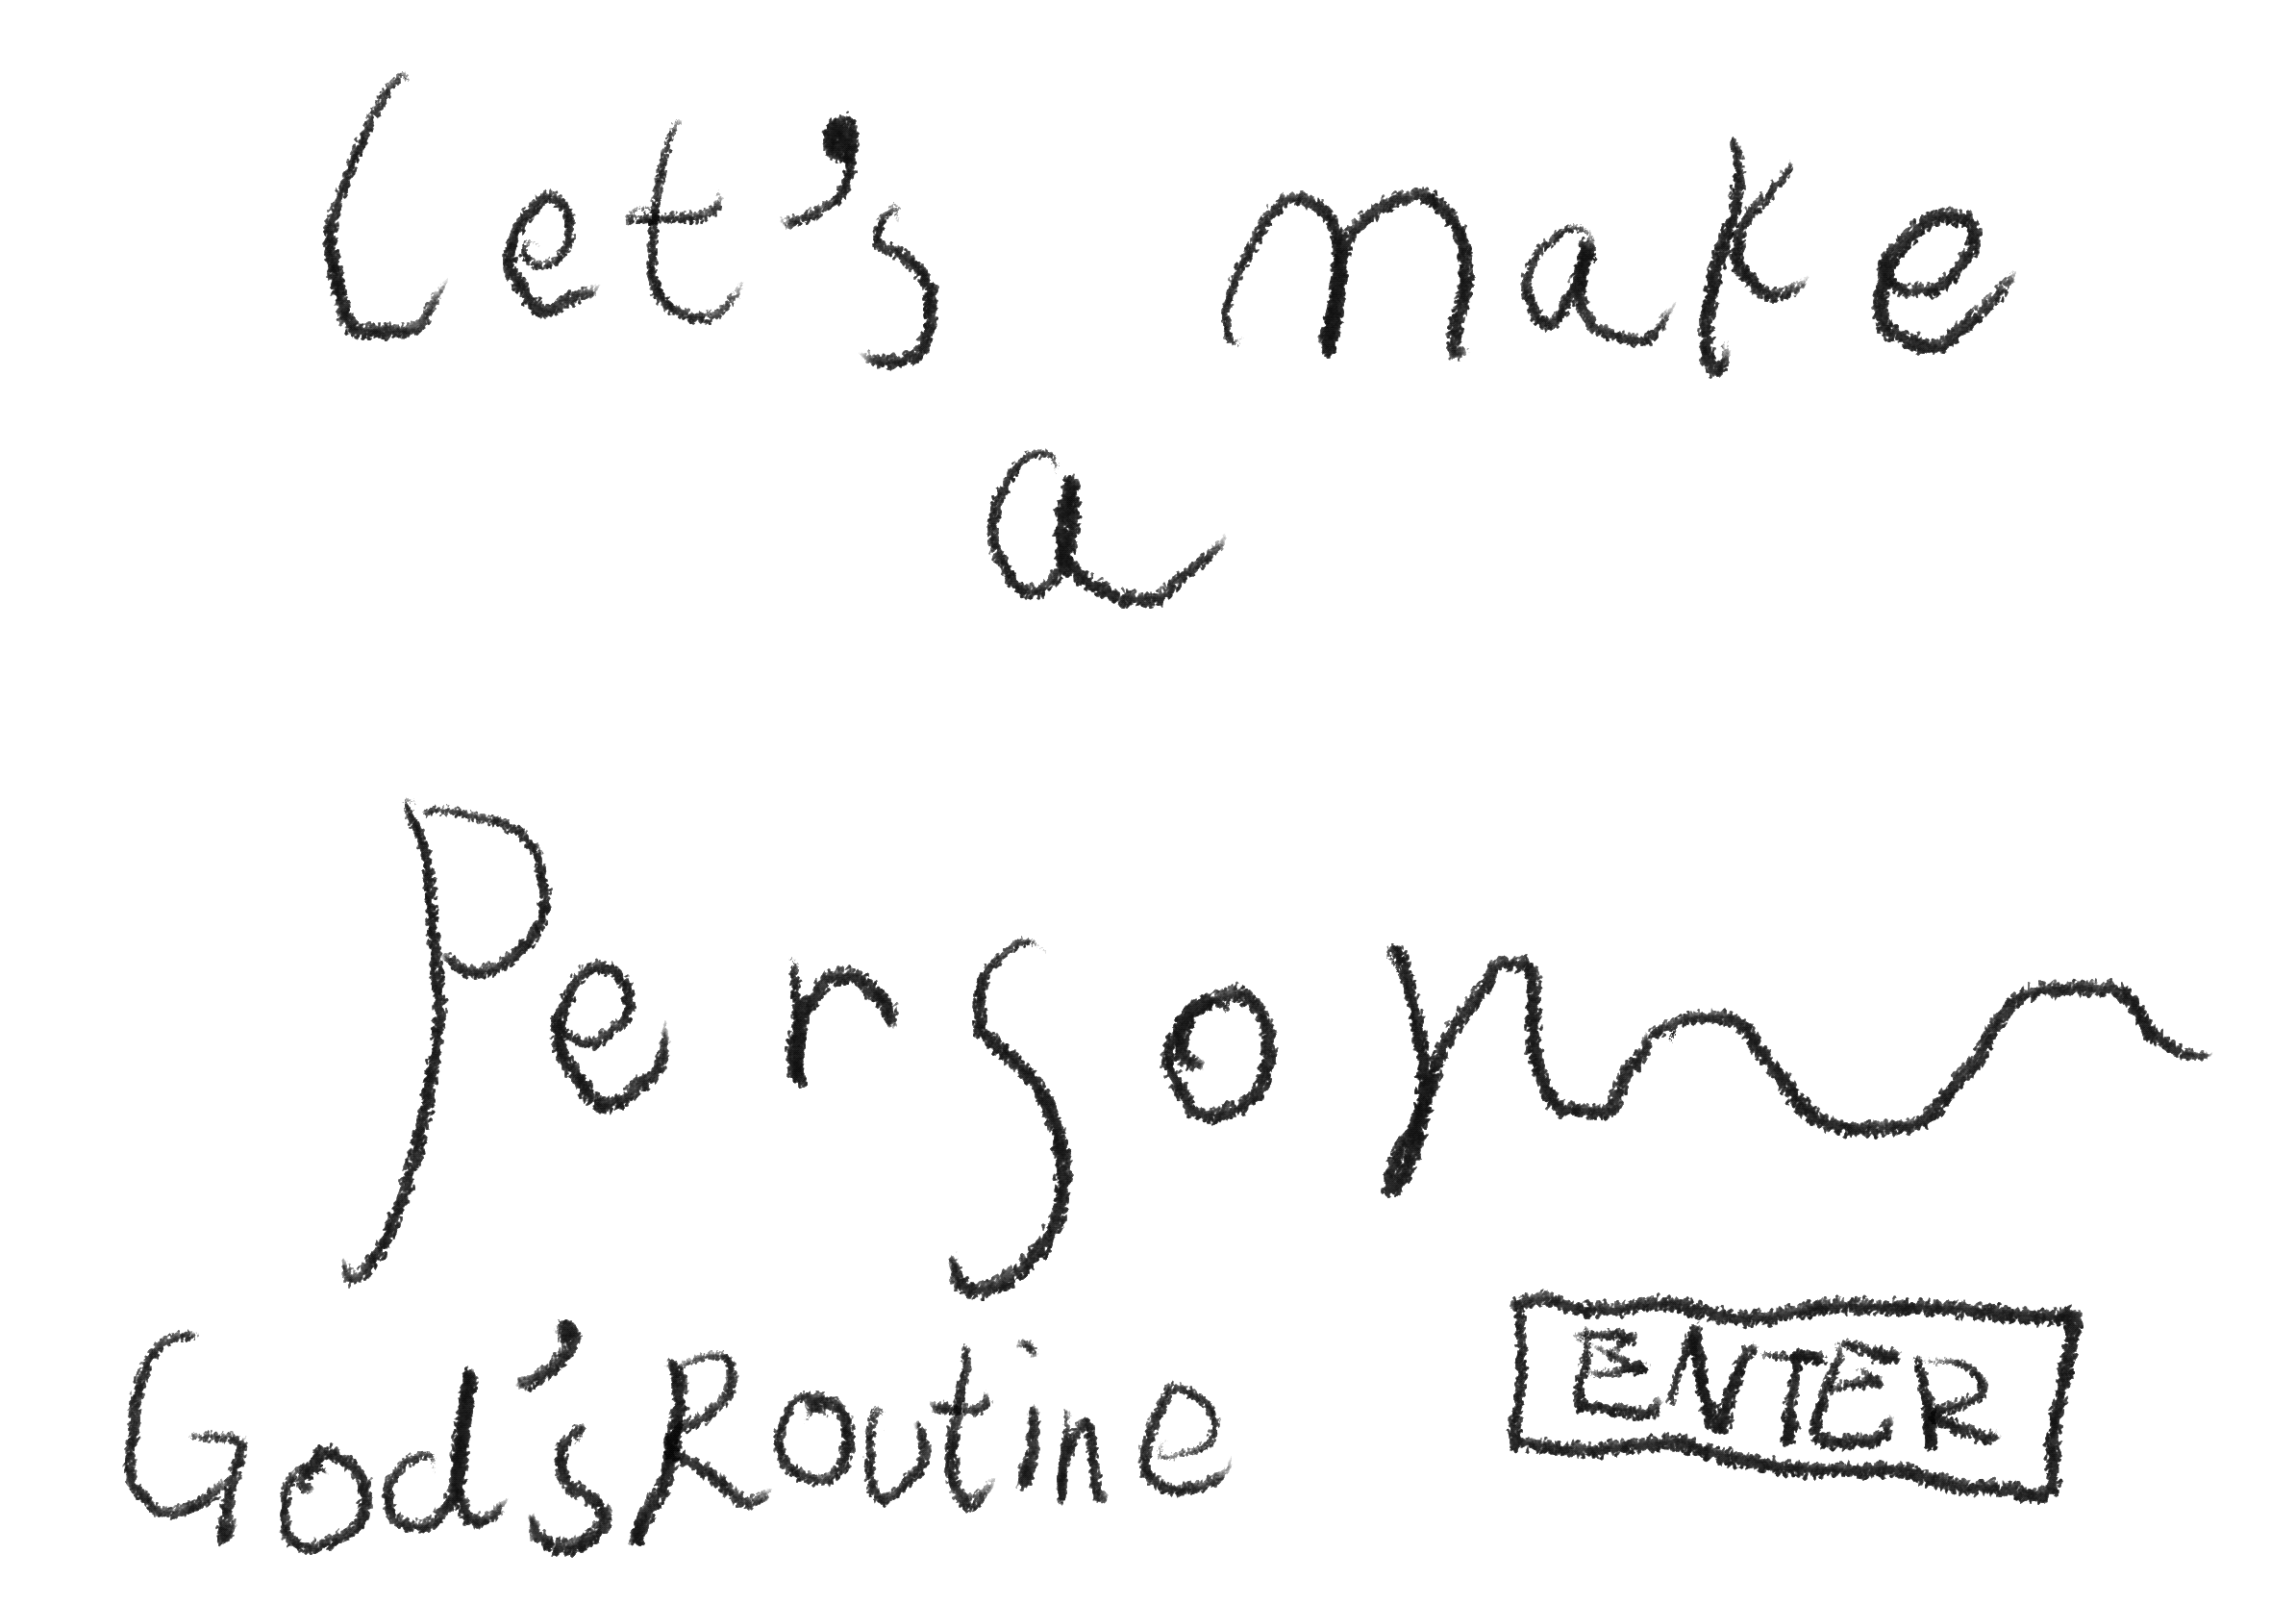 Let's make
a
Person
God's Routine
ENTER